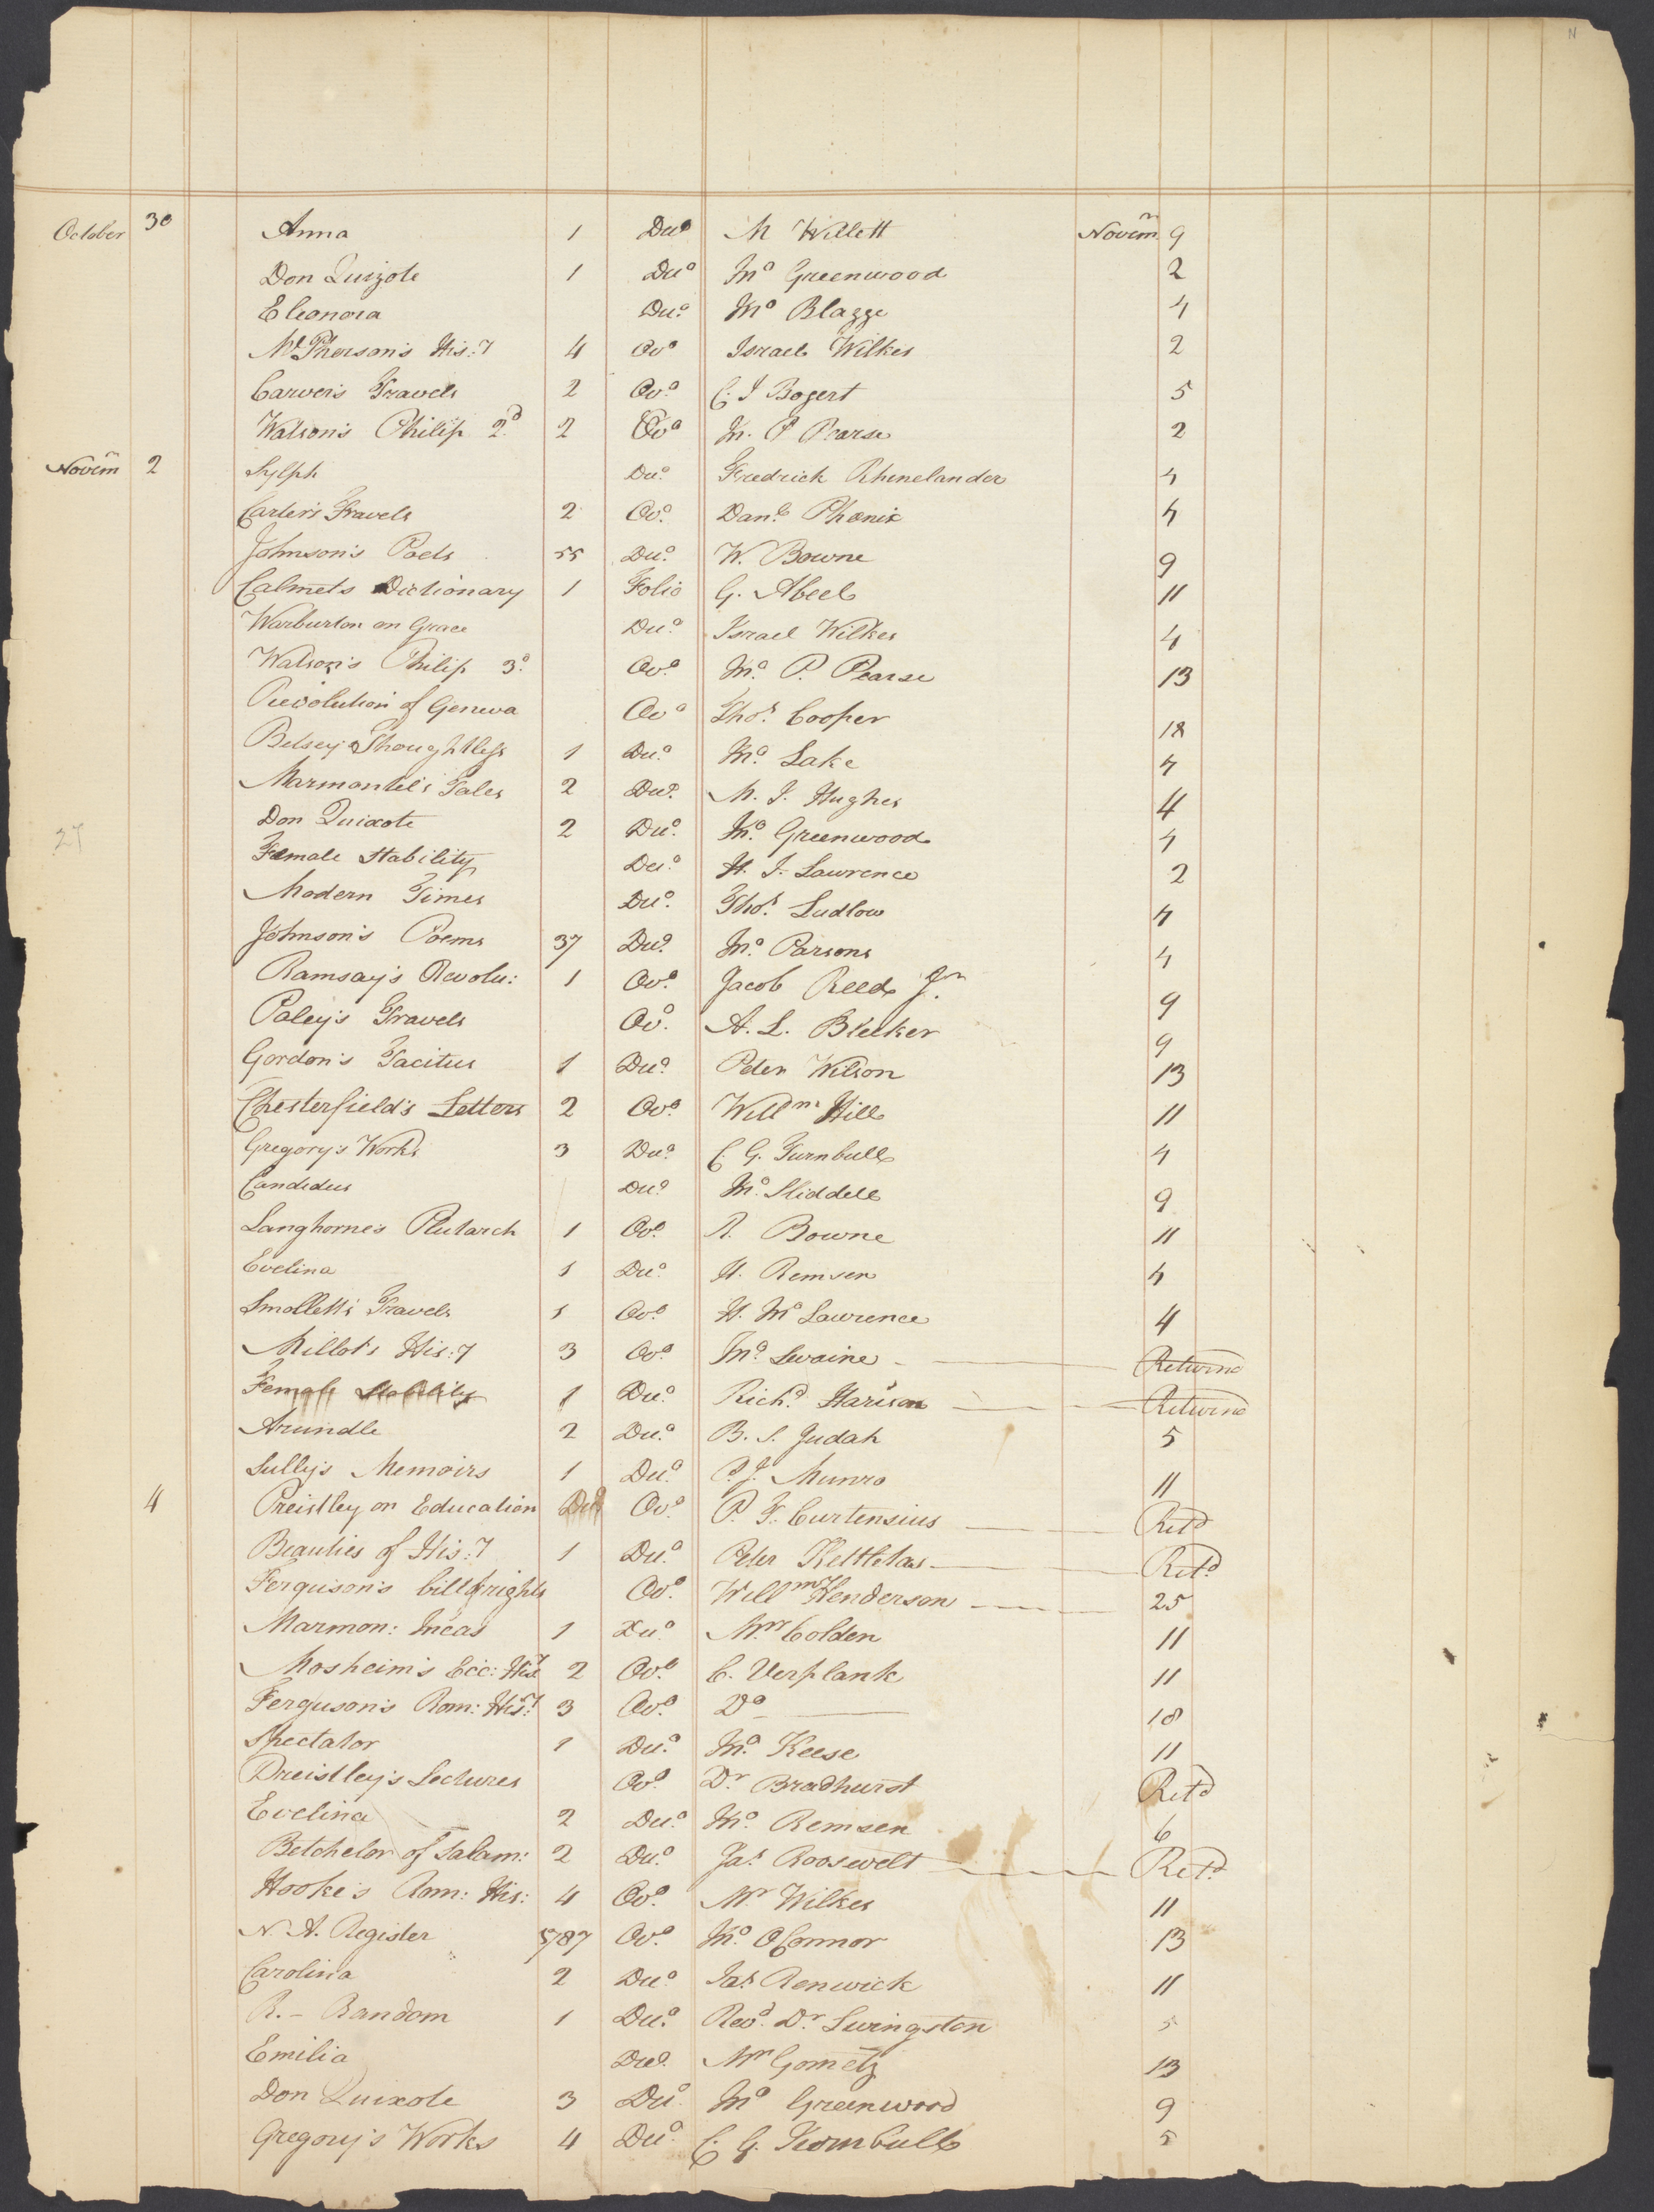 October 30 Anna 1 Duo M Willett Novem 9
Don Quixote 1 Duo Jno Greenwood 2
Eleonora Duo Jno Blagge 4
McPherson's His:y 4 Ovo Israel Wilkes 2
Carver's Travels 2 Ovo C. I Bogert 5
Watson's Philip 2d 2 Ovo Jn. P Pearse 2
Novem 2 Sylph Duo Fredrick Rhinelander 4
Carter's Travels 2 Ovo Danl Phonix 4
Johnson's Poets 55 Duo W. Bowne 9
Calmets Dictionary 1 Folio G. Abeel 11
Warburton on Grace Duo Israel Wilkes 4
Watson's Philip 3d Ovo Jno P. Pearse 13
Revolution of Geneva Ovo Thos Cooper 18
Betsey Thoughtless 1 Duo Jno Lake 4
Marmontel's Tales 2 Duo M. I. Hughes 4
Don Quixote 2 Duo Jno Greenwood 4
27
Female Stability Duo H. I. Lawrence 2
Modern Times Duo Thos Ludlow 4
Johnson's Poems 37 Duo Jno Parsons 4
Ramsay's Revolu: 1 Ovo Jacob Reed Jn. 9
Paley's Travels Ovo A. L. Bleeker 9
Gordon's Tacitus 1 Duo Peter Wilson 13
Chesterfield's Letters 2 Ovo Willm Hill 11
Gregory's Works 3 Duo C. G. Turnbull 4
Candedus Duo Jno Sliddell 9
Langhorne's Plutarch 1 Ovo R. Bowne 11
Evelina 1 Duo H. Remsen 4
Smollett's Travels 1 Ovo H. Mc Lawrence 4
Millot's His:y 3 Ovo Jno Swaine Returnd
Female Stability 1 Duo Richd Harison Returnd
Arundle 2 Duo B. S. Judah 5
Sully's Memoirs 1 Duo P. J. Munro 11
4 Preistley on Education Duo Ovo P. T. Curtensius Retd
Beauties of His:y 1 Duo Peter Kettletas Retd
Ferguson's Ovo Willm Henderson 25
Marmon: Incas 1 Duo Mrs Colden 11
Mosheim's Ecc: Hisy 2 Ovo C. Verplank 11
Ferguson's Rom: Hisy 3 Ovo Do 18
Spectator 1 Duo Jno Keese 11
Preistley's Lectures Ovo Dr Bradhurst Retd
Evelina 2 Duo Jno Remsen 6
Betchelor of Salam: 2 Duo Jas Roosevelt Retd
Hooke's Rom: His: 4 Ovo Mr Wilkes 11
N. A. Register 1787 Ovo Jno OConnor 13
Carolina 2 Duo Jas Renwick 11
R. - Random 1 Duo Revd Dr Livingston 5
Emilia Duo Mr Gometz 13
Don Quixote 3 Duo Jno Greenwood 9
Gregory's Works 4 Duo C. G. Turnbull 5